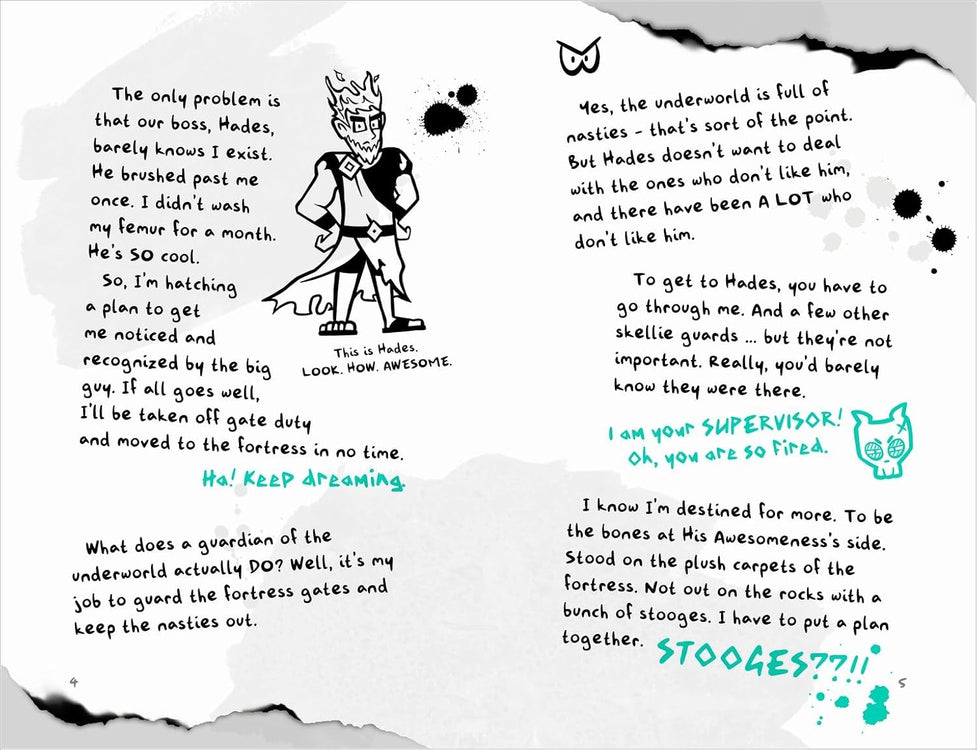 The only problem is
that our boss, Hades,
barely knows I exist.
He brushed past me
once. I didn't wash
my femur for a month.
He's SO cool.
So, I'm hatching
a plan to get
me noticed and
recognized by the big
guy. If all goes well,
I'll be taken off gate duty
and moved to the fortress in no time.
This is Hades.
LOOK. HOW. AWESOME.
Ha! Keep dreaming.
What does a guardian of the
underworld actually DO? Well, it's my
job to guard the fortress gates and
keep the nasties out.
4
Yes, the underworld is full of
nasties – that's sort of the point.
But Hades doesn't want to deal
with the ones who don't like him,
and there have been A LOT who
don't like him.
To get to Hades, you have to
go through me. And a few other
skellie guards ... but they're not
important. Really, you'd barely
know they were there.
I am your SUPERVISOR!
Oh, you are so fired.
I know I'm destined for more. To be
the bones at His Awesomeness's side.
Stood on the plush carpets of the
fortress. Not out on the rocks with a
bunch of stooges. I have to put a plan
together.
STOOGES??!!
5